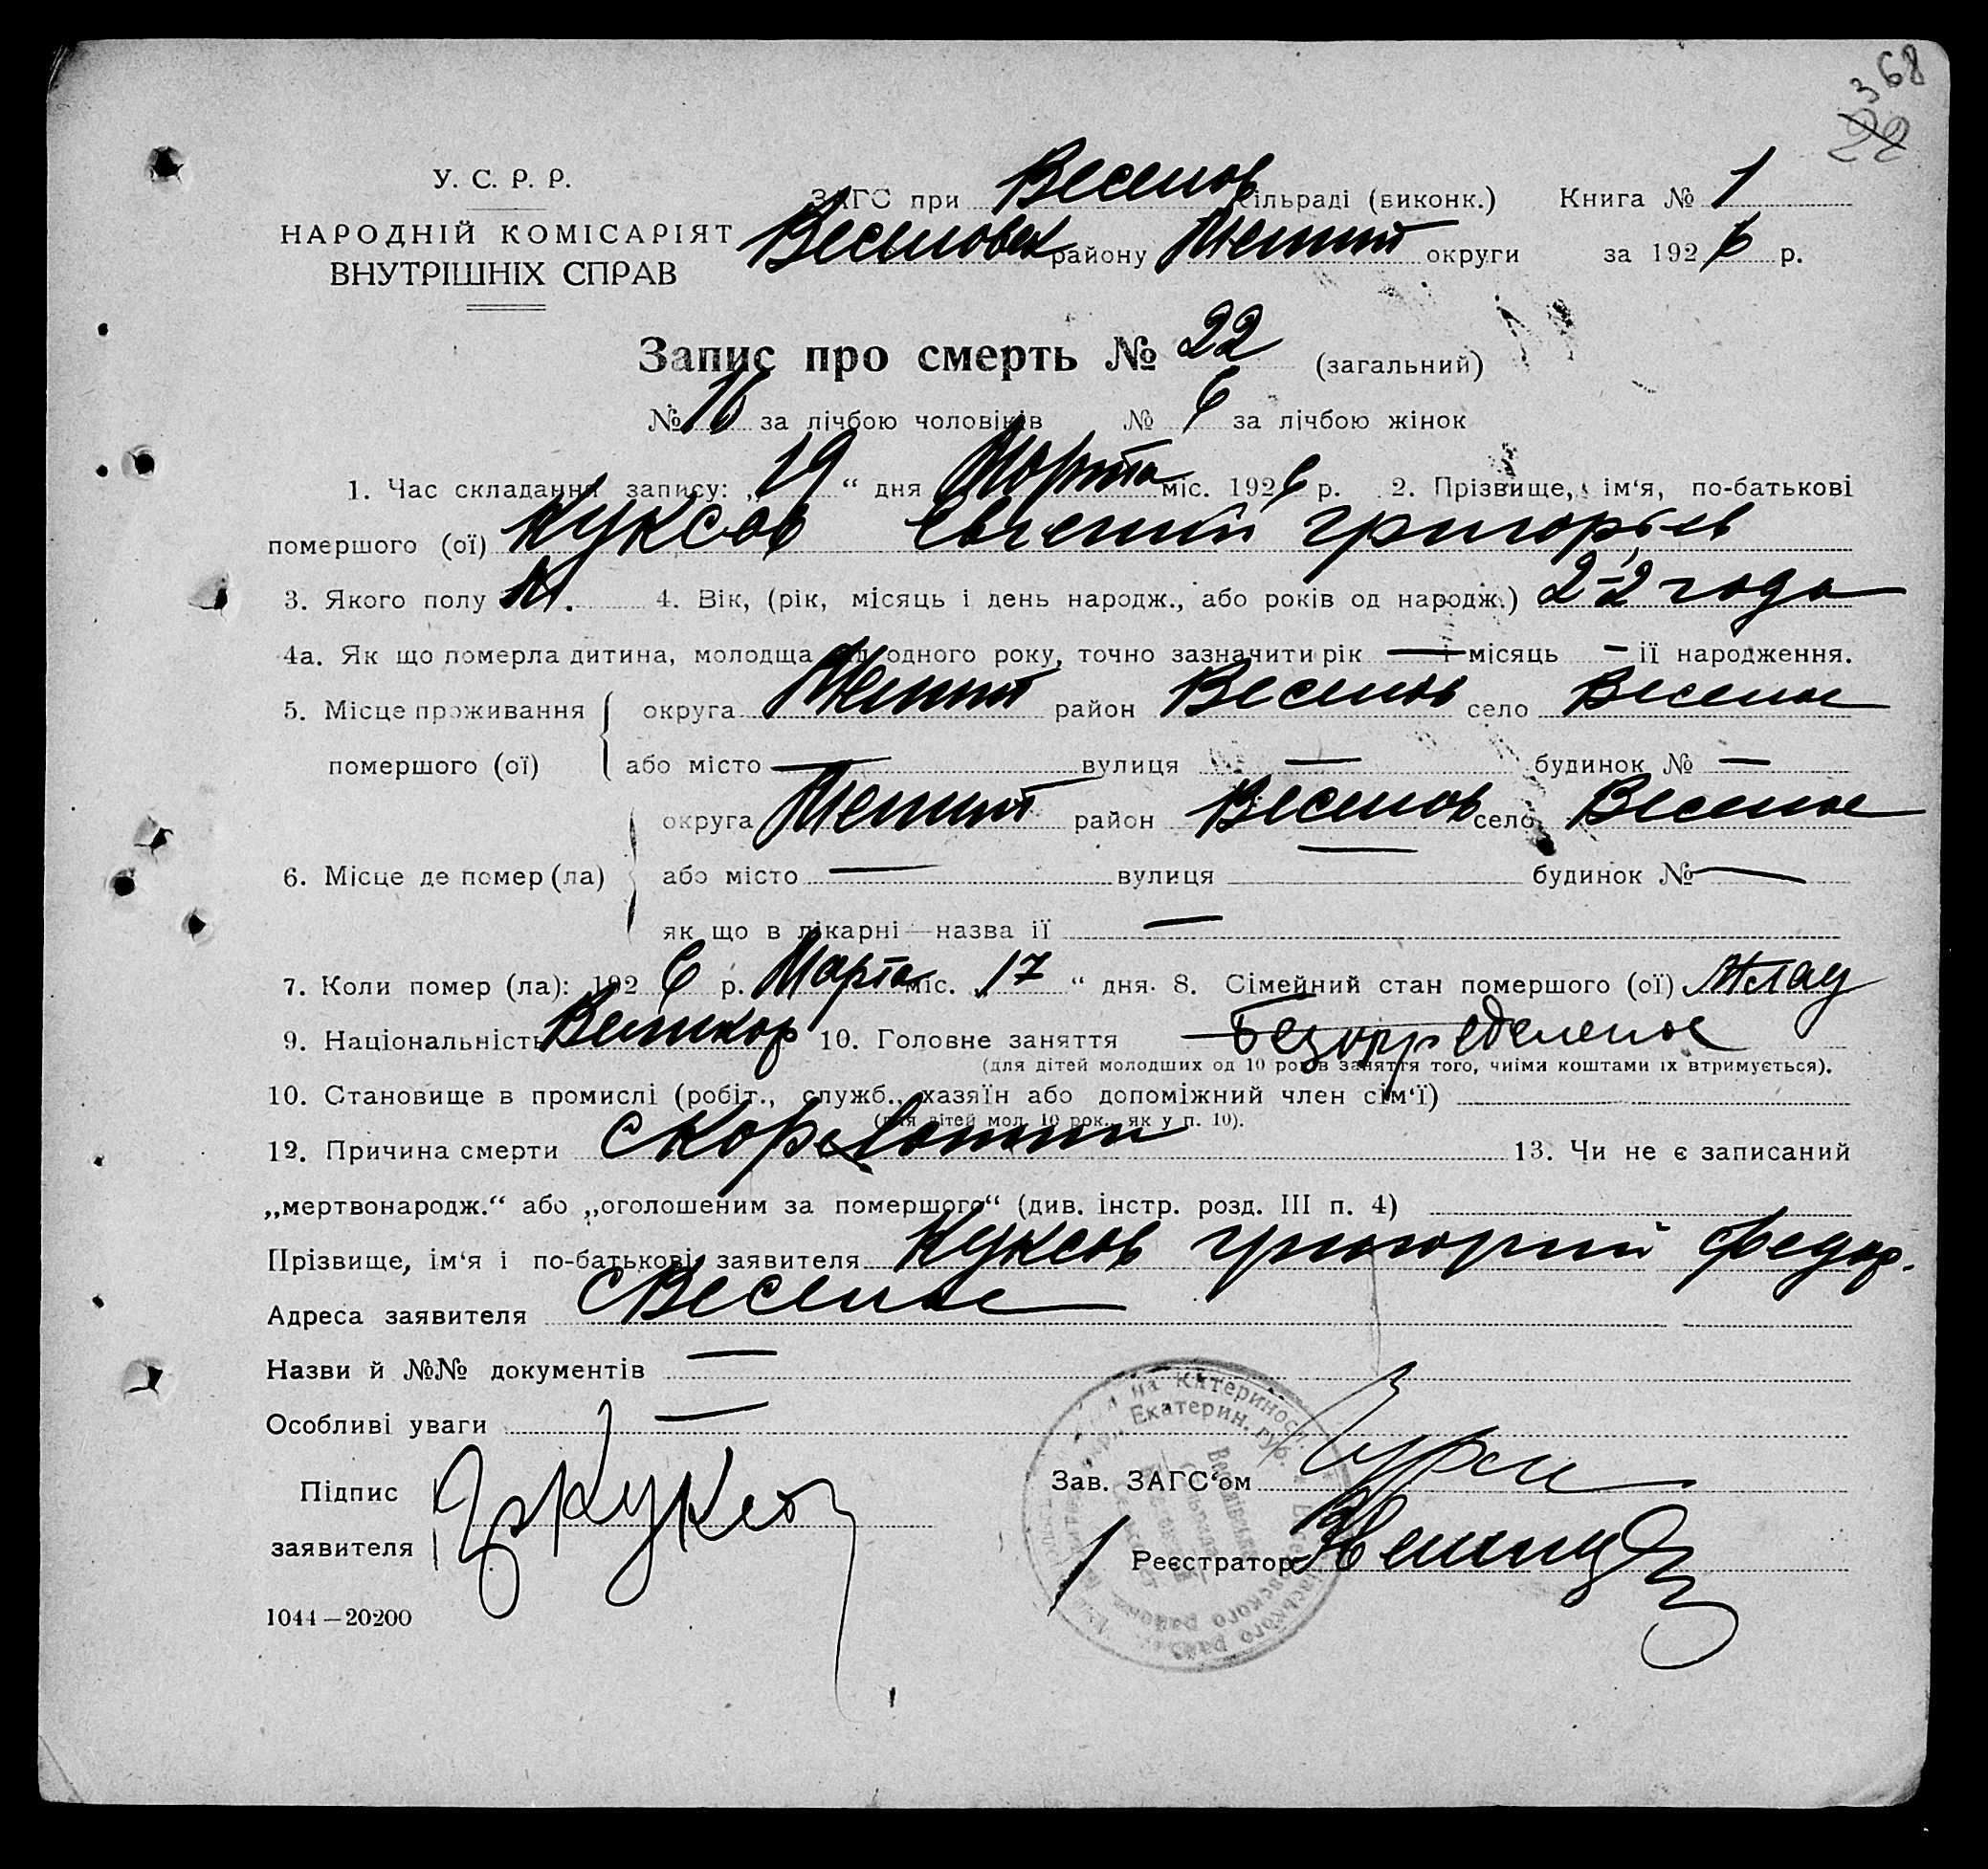 368
22
У. С. Р. Р.
НАРОДНІЙ КОМІСАРІЯТ
ВНУТРІШНІХ СПРАВ
ЗАГС при Веселов сільраді (виконк.) Книга № 1
Веселовск району Мелит округи за 1926 р.
Запис про смерть № 22 (загальний)
№ 16 за лічбою чоловіків № 6 за лічбою жінок
1. Час складання запису: „19“ дня Марта міс. 1926 р. 2. Прізвище, ім‘я, по-батькові
помершого (ої) Куксов Евгений Григорьев
3. Якого полу М. 4. Вік, (рік, місяць і день народж., або років од народж.) 2-2 года
4а. Як що померла дитина, молодша від одного року, точно зазначити рік — і місяць — її народження.
5. Місце проживання округа Мелит район Веселов село Веселое
помершого (ої) або місто — вулиця — будинок № —
округа Мелит район Веселов село Веселое
6. Місце де помер (ла) або місто — вулиця — будинок № —
як що в лікарні—назва її —
7. Коли помер (ла): 1926 р. Марта міс. „17“ дня. 8. Сімейний стан помершого (ої) Млад
9. Національність Великор 10. Головне заняття
(для дітей молодших од 10 років заняття того, чиїми коштами їх втримується).
10. Становище в промислі (робіт., служб., хазяїн або допоміжний член сім‘ї)
(для дітей мол. 10 рок., як у п. 10).
12. Причина смерти 13. Чи не є записаний
„мертвонародж.“ або „оголошеним за помершого“ (див. інстр. розд. III п. 4)
Прізвище, ім‘я і по-батькові заявителя Куксов Григорий Федор.
Адреса заявителя с Веселое
Назви й №№ документів —
Особливі уваги —
Підпис
заявителя Гр Куксов
Зав. ЗАГС‘ом
Реєстратор
1044—20200
Екатерин. губ.